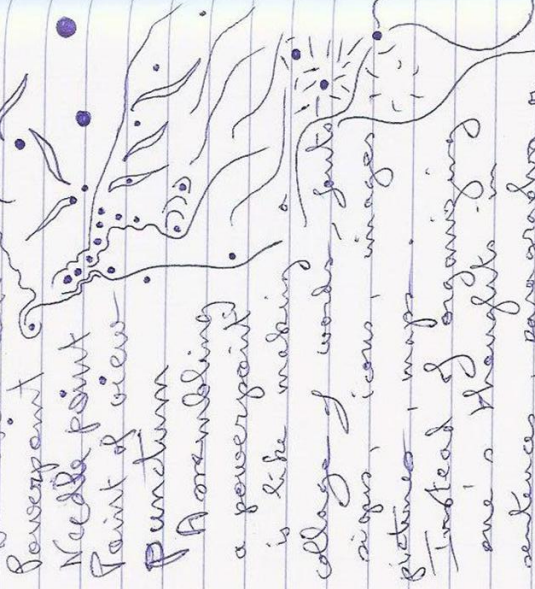 Powerpoint
Needle point
Point of view
Punctum
Assembling
a powerpoint
is like making
collage of words, fonts
signs, icons, images
pictures, maps.
Instead of organising
one's thoughts in
sentences, paragraphs